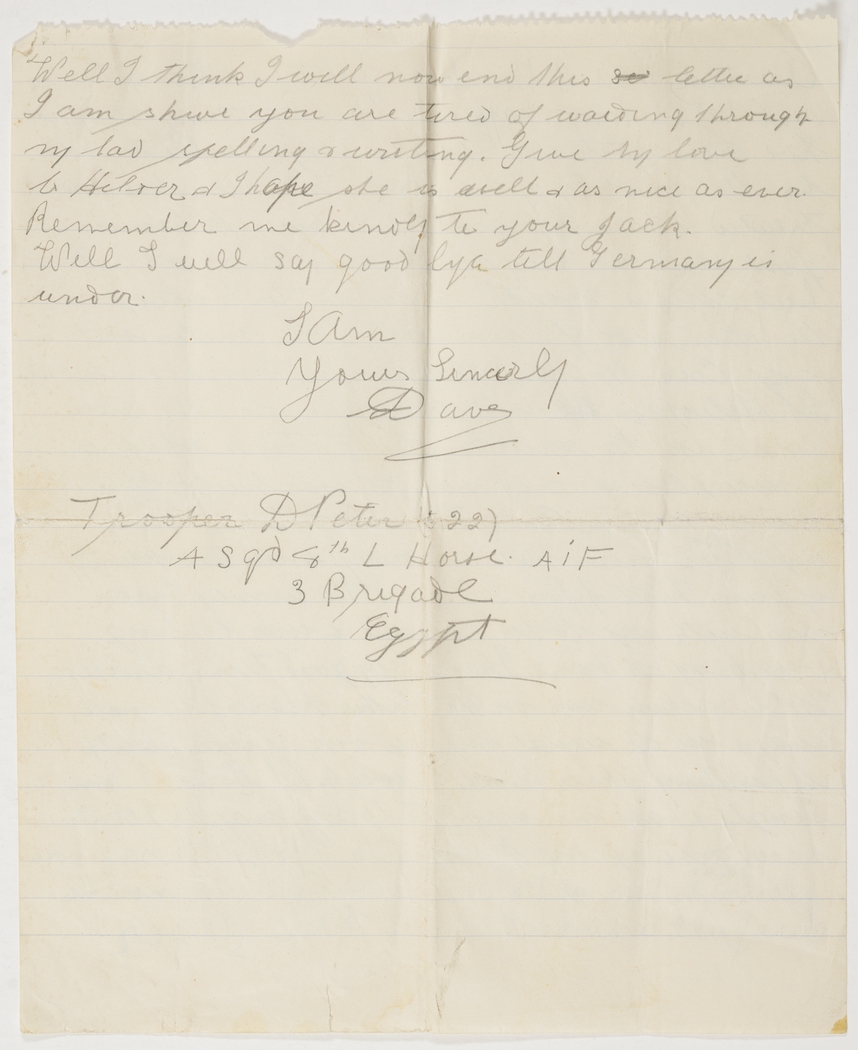 Well I think I will now end this so letter as
I am shure you are tired of waiding through
my bad spelling & writing. Give my love
to & I hope she is well & as nice as ever.
Remember me kindly to your Jack.
Well I will say good bye till Germany is
under.
I Am
Yours Sincerly
Dave
Trooper D Peter 522)
A Sqd 8th L Horse. AiF
3 Brigade
Egypt